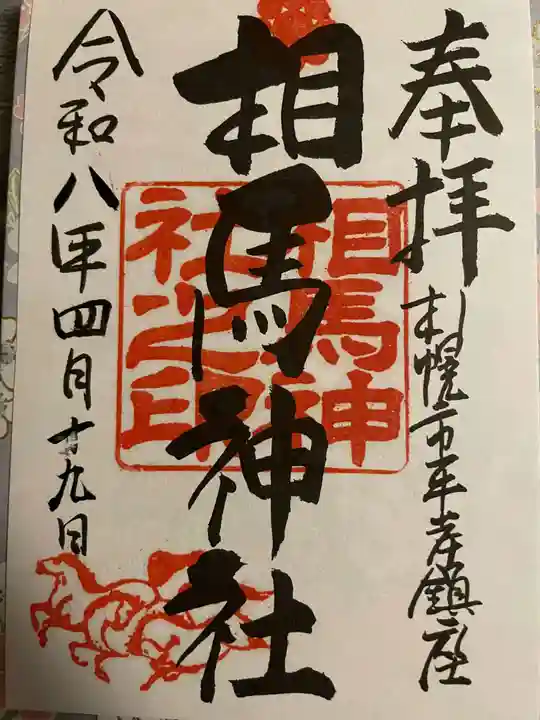 奉拝
札幌市平岸鎮座
相馬神社
相馬神
社之印
令和八年四月十九日